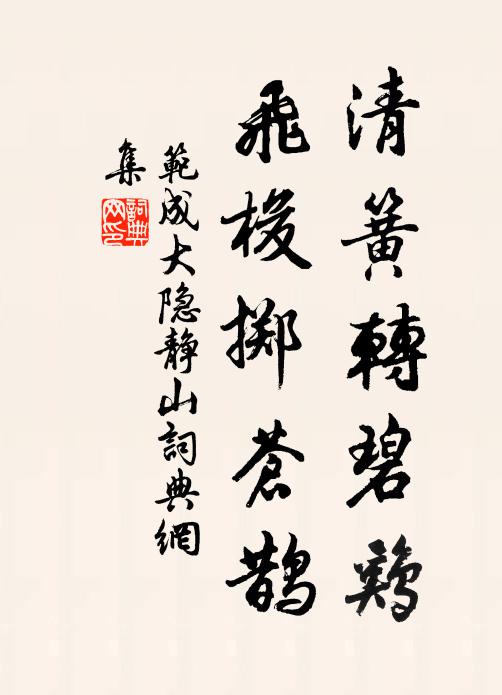 清簧轉碧鷄
飛梭擲蒼鵲
範成大隐静山詞典網
集
詞典网印